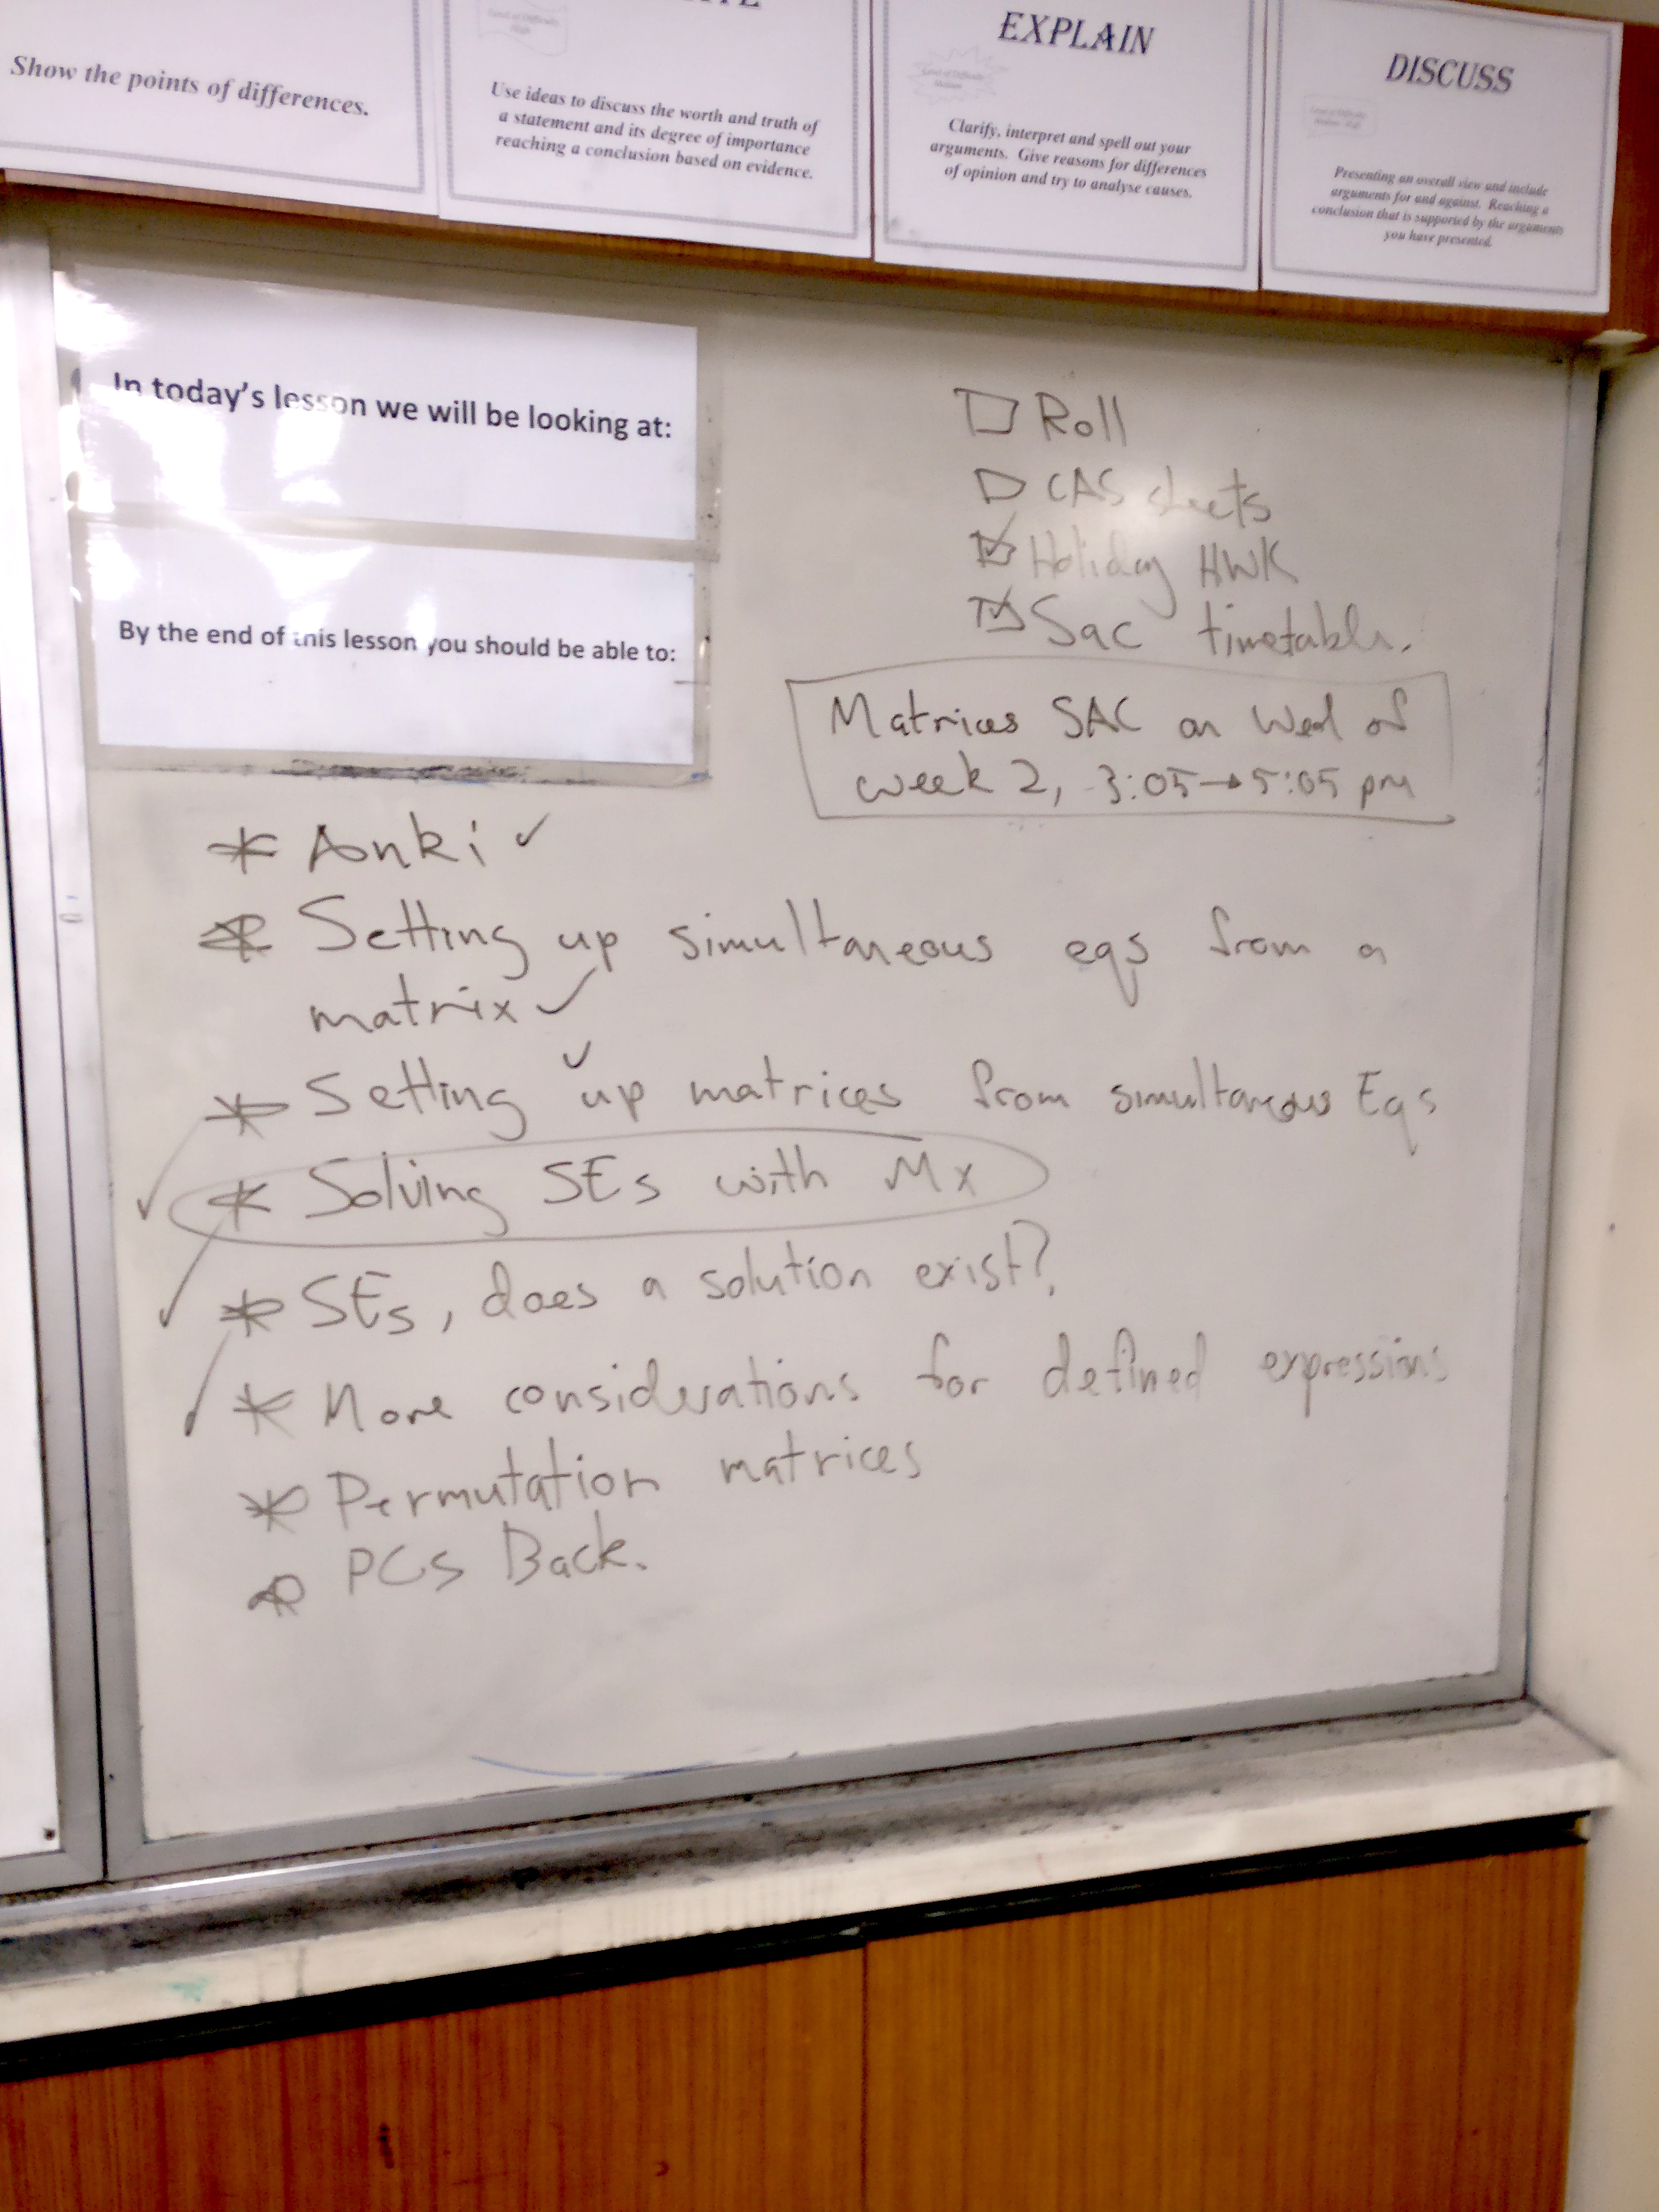 Show the points of differences.
Use ideas to discuss the worth and truth of
a statement and its degree of importance
reaching a conclusion based on evidence.
EXPLAIN
Clarify, interpret and spell out your
arguments. Give reasons for differences
of opinion and try to analyse causes.
DISCUSS
Presenting an overall view and include
arguments for and against. Reaching a
conclusion that is supported by the arguments
you have presented.
In today's lesson we will be looking at:
By the end of this lesson you should be able to:
Roll
CAS sheets
Holiday HWK
Sac timetable.
Matrices SAC on Wed of
week 2, 3:05→5:05 pm
* Anki ✓
* Setting up simultaneous eqs from a
matrix ✓
* Setting up matrices from simultaneous Eqs
* Solving SEs with Mx
* SEs, does a solution exist?
* More considerations for defined expressions
* Permutation matrices
* PCs Back.